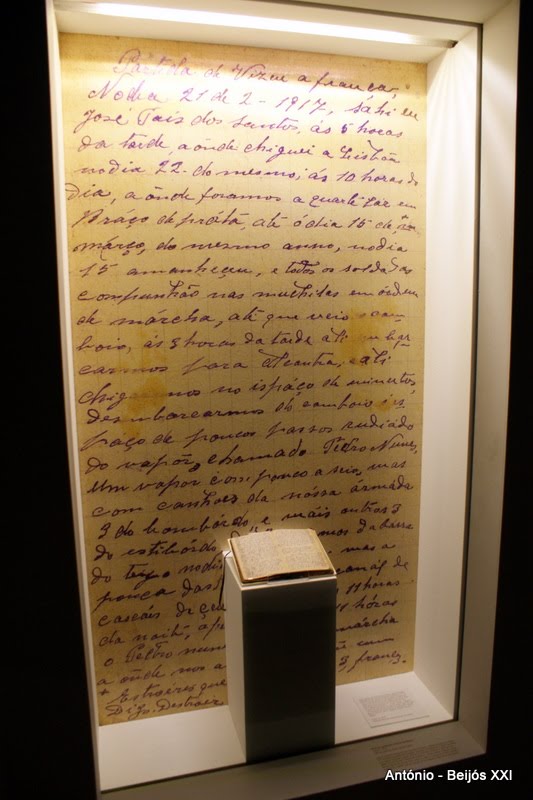 Partida de Vizeu a frança,
No dia 21 de 2 - 1917, sáhi eu
José Pais dos santos, ás 5 horas
da tarde, a onde chiguei a Lisbôa
no dia 22 do mesmo, ás 10 horas do
dia, a onde foramos a quartelar em
Braço de prátá, até ó dia 15 de
março, do mesmo anno, no dia
15 amanheceu, e todos os soldados
compunhão nas muchilas em órdem
de márcha, até que veio o com
boio, ás 3 horas da tarde ali embar
carmos para Alcantra, e ali
chigamos no ispáço de minutos,
desembarcarmos do comboio i es
paço de poucos passos rudiádo
do vapôr, chamado Pedro Nunes,
um vapor com pouco a seio, mas
com canhões da nóssa ármáda
3 do bombórdo, e máis outros 3
do estibórdo da barra
do tejo no di mas a
pouca das
cascáis de 11 horas
da noite, 11 hóras
o Pedro nun márcha
a onde nos a
3, francez.
Destroer
António - Beijós XXI